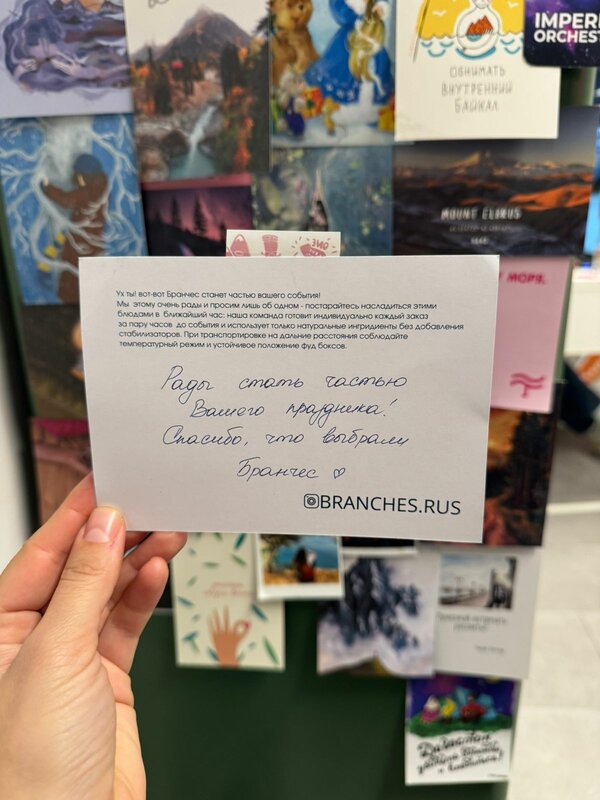 IMPERI
ORCHEST
ОБНИМАТЬ
ВНУТРЕННИЙ
БАЙКАЛ
MOUNT ELBRUS
МОРЯ.
Ух ты! вот-вот Бранчес станет частью вашего события!
Мы этому очень рады и просим лишь об одном - постарайтесь насладиться этими
блюдами в ближайший час: наша команда готовит индивидуально каждый заказ
за пару часов до события и использует только натуральные ингридиенты без добавления
стабилизаторов. При транспортировке на дальние расстояния соблюдайте
температурный режим и устойчивое положение фуд боксов.
Рады стать частью
Вашего праздника!
Спасибо, что выбрали
Бранчес ♡
BRANCHES.RUS
Дагестан